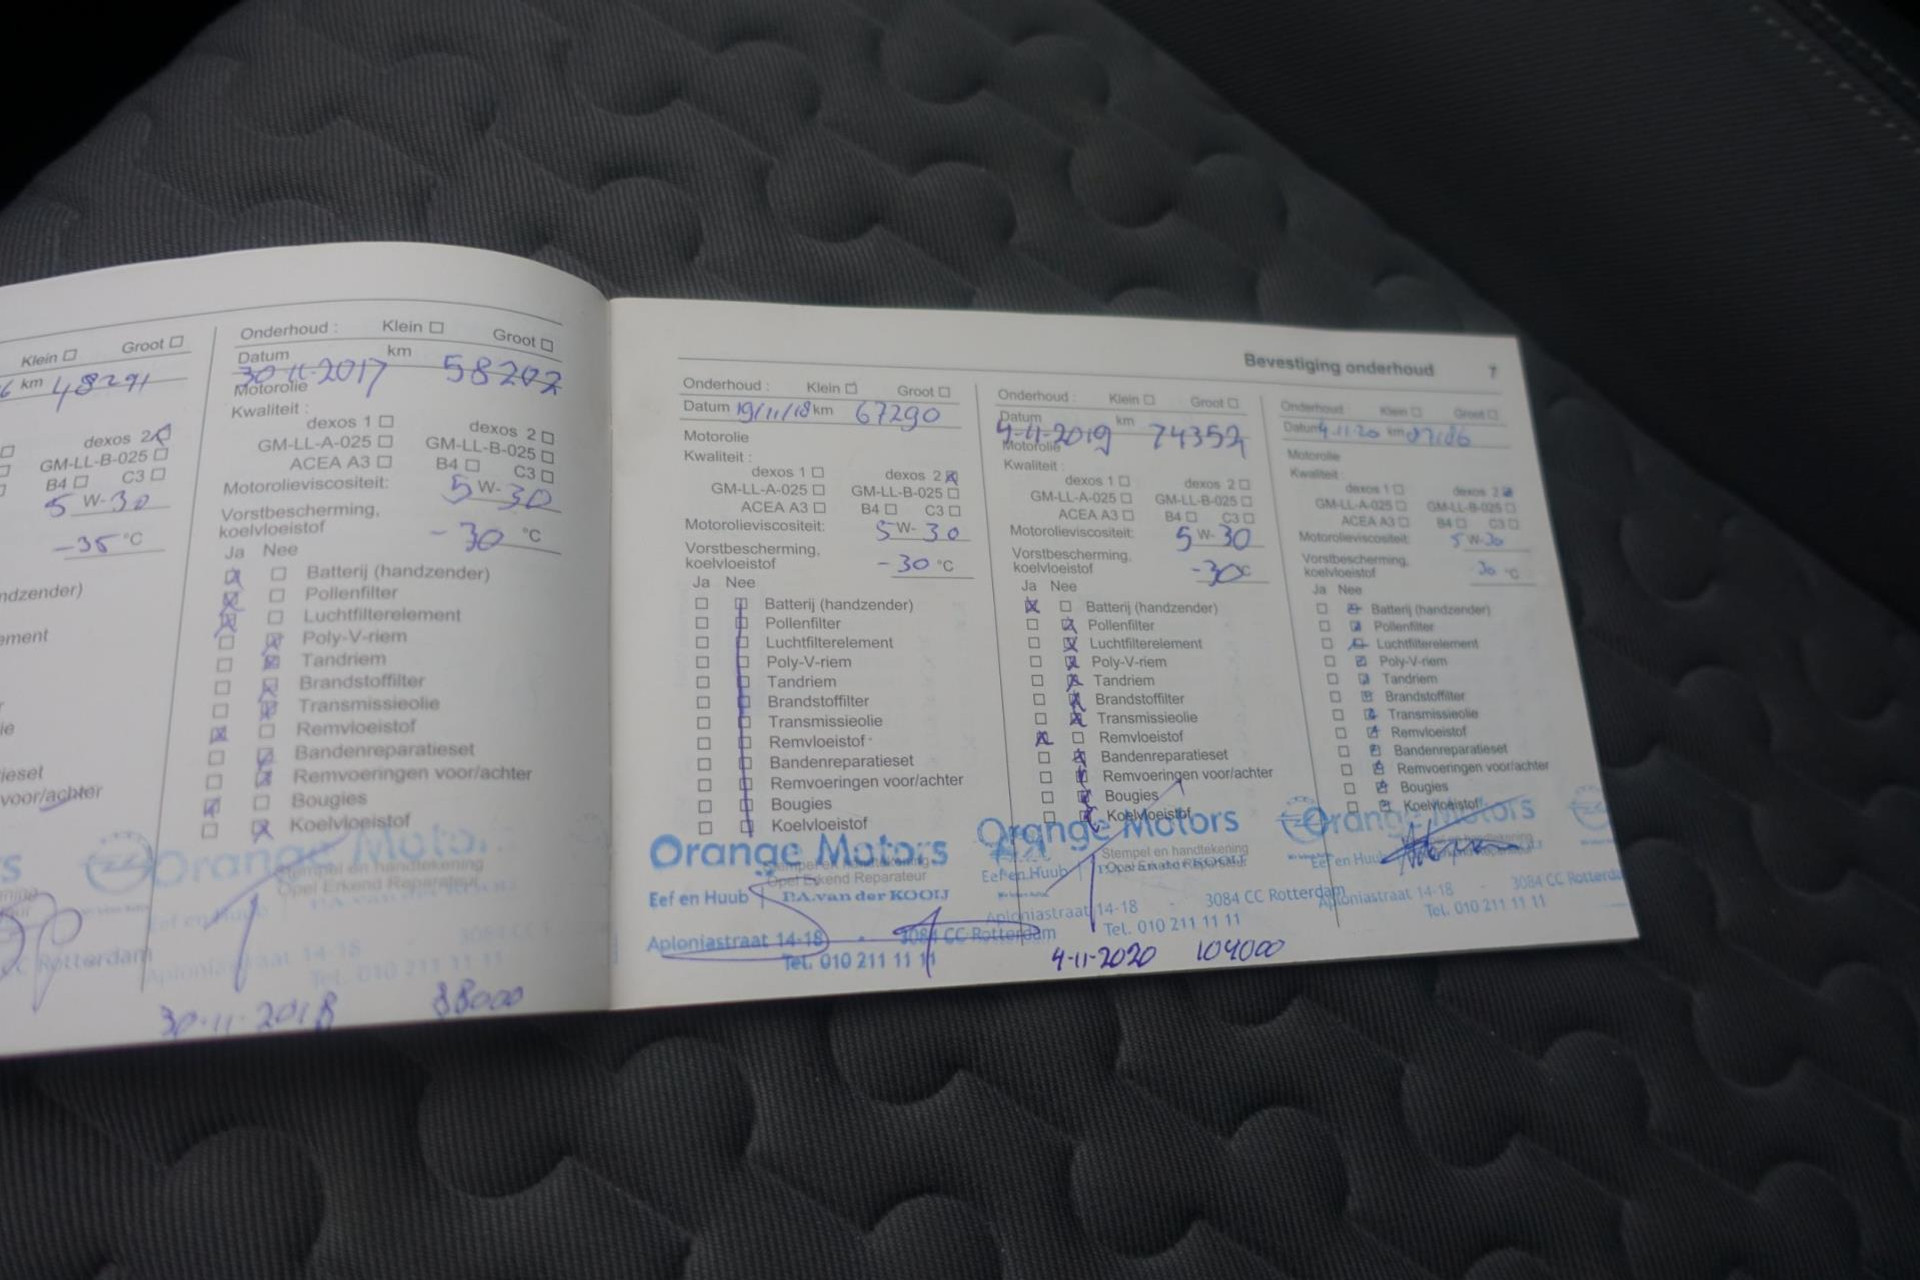 Klein Groot
km 48291
dexos 2
GM-LL-B-025
B4 C3
5 W-30
-35 °C
Onderhoud : Klein Groot
Datum km
30-11-2017 58207
Motorolie
Kwaliteit :
dexos 1 dexos 2
GM-LL-A-025 GM-LL-B-025
ACEA A3 B4 C3
Motorolieviscositeit: 5 W-30
Vorstbescherming,
koelvloeistof -30 °C
Ja Nee
Batterij (handzender)
Pollenfilter
Luchtfilterelement
Poly-V-riem
Tandriem
Brandstoffilter
Transmissieolie
Remvloeistof
Bandenreparatieset
Remvoeringen voor/achter
Bougies
Koelvloeistof
Orange Motors
Stempel en handtekening
Opel Erkend Reparateur
Eef en Huub
14-18
Tel. 010 211 11 11
Rotterdam
30-11-2018 88000
Bevestiging onderhoud 7
Onderhoud : Klein Groot
Datum 19/11/18 km 67290
Motorolie
Kwaliteit :
dexos 1 dexos 2
GM-LL-A-025 GM-LL-B-025
ACEA A3 B4 C3
Motorolieviscositeit: 5 W-30
Vorstbescherming,
koelvloeistof -30 °C
Ja Nee
Batterij (handzender)
Pollenfilter
Luchtfilterelement
Poly-V-riem
Tandriem
Brandstoffilter
Transmissieolie
Remvloeistof
Bandenreparatieset
Remvoeringen voor/achter
Bougies
Koelvloeistof
Orange Motors
Stempel en handtekening
Opel Erkend Reparateur
Eef en Huub P.A. van der KOOIJ
Aploniastraat 14-18 - 3084 CC Rotterdam
Tel. 010 211 11 11
Onderhoud : Klein Groot
Datum km
4-11-2019 74352
Motorolie
Kwaliteit :
dexos 1 dexos 2
GM-LL-A-025 GM-LL-B-025
ACEA A3 B4 C3
Motorolieviscositeit: 5 W-30
Vorstbescherming,
koelvloeistof -30 °C
Ja Nee
Batterij (handzender)
Pollenfilter
Luchtfilterelement
Poly-V-riem
Tandriem
Brandstoffilter
Transmissieolie
Remvloeistof
Bandenreparatieset
Remvoeringen voor/achter
Bougies
Koelvloeistof
Orange Motors
Stempel en handtekening
Eef en Huub
Aploniastraat 14-18 - 3084 CC Rotterdam
Tel. 010 211 11 11
4-11-2020 104000
Onderhoud : Klein Groot
Datum 4.11.20 km
Motorolie
Kwaliteit :
dexos 1 dexos 2
GM-LL-A-025 GM-LL-B-025
ACEA A3 B4 C3
Motorolieviscositeit: 5 W-30
Vorstbescherming,
koelvloeistof -30 °C
Ja Nee
Batterij (handzender)
Pollenfilter
Luchtfilterelement
Poly-V-riem
Tandriem
Brandstoffilter
Transmissieolie
Remvloeistof
Bandenreparatieset
Remvoeringen voor/achter
Bougies
Koelvloeistof
Orange Motors
Eef en Huub
Aploniastraat 14-18 - 3084 CC Rotterda
Tel. 010 211 11 11